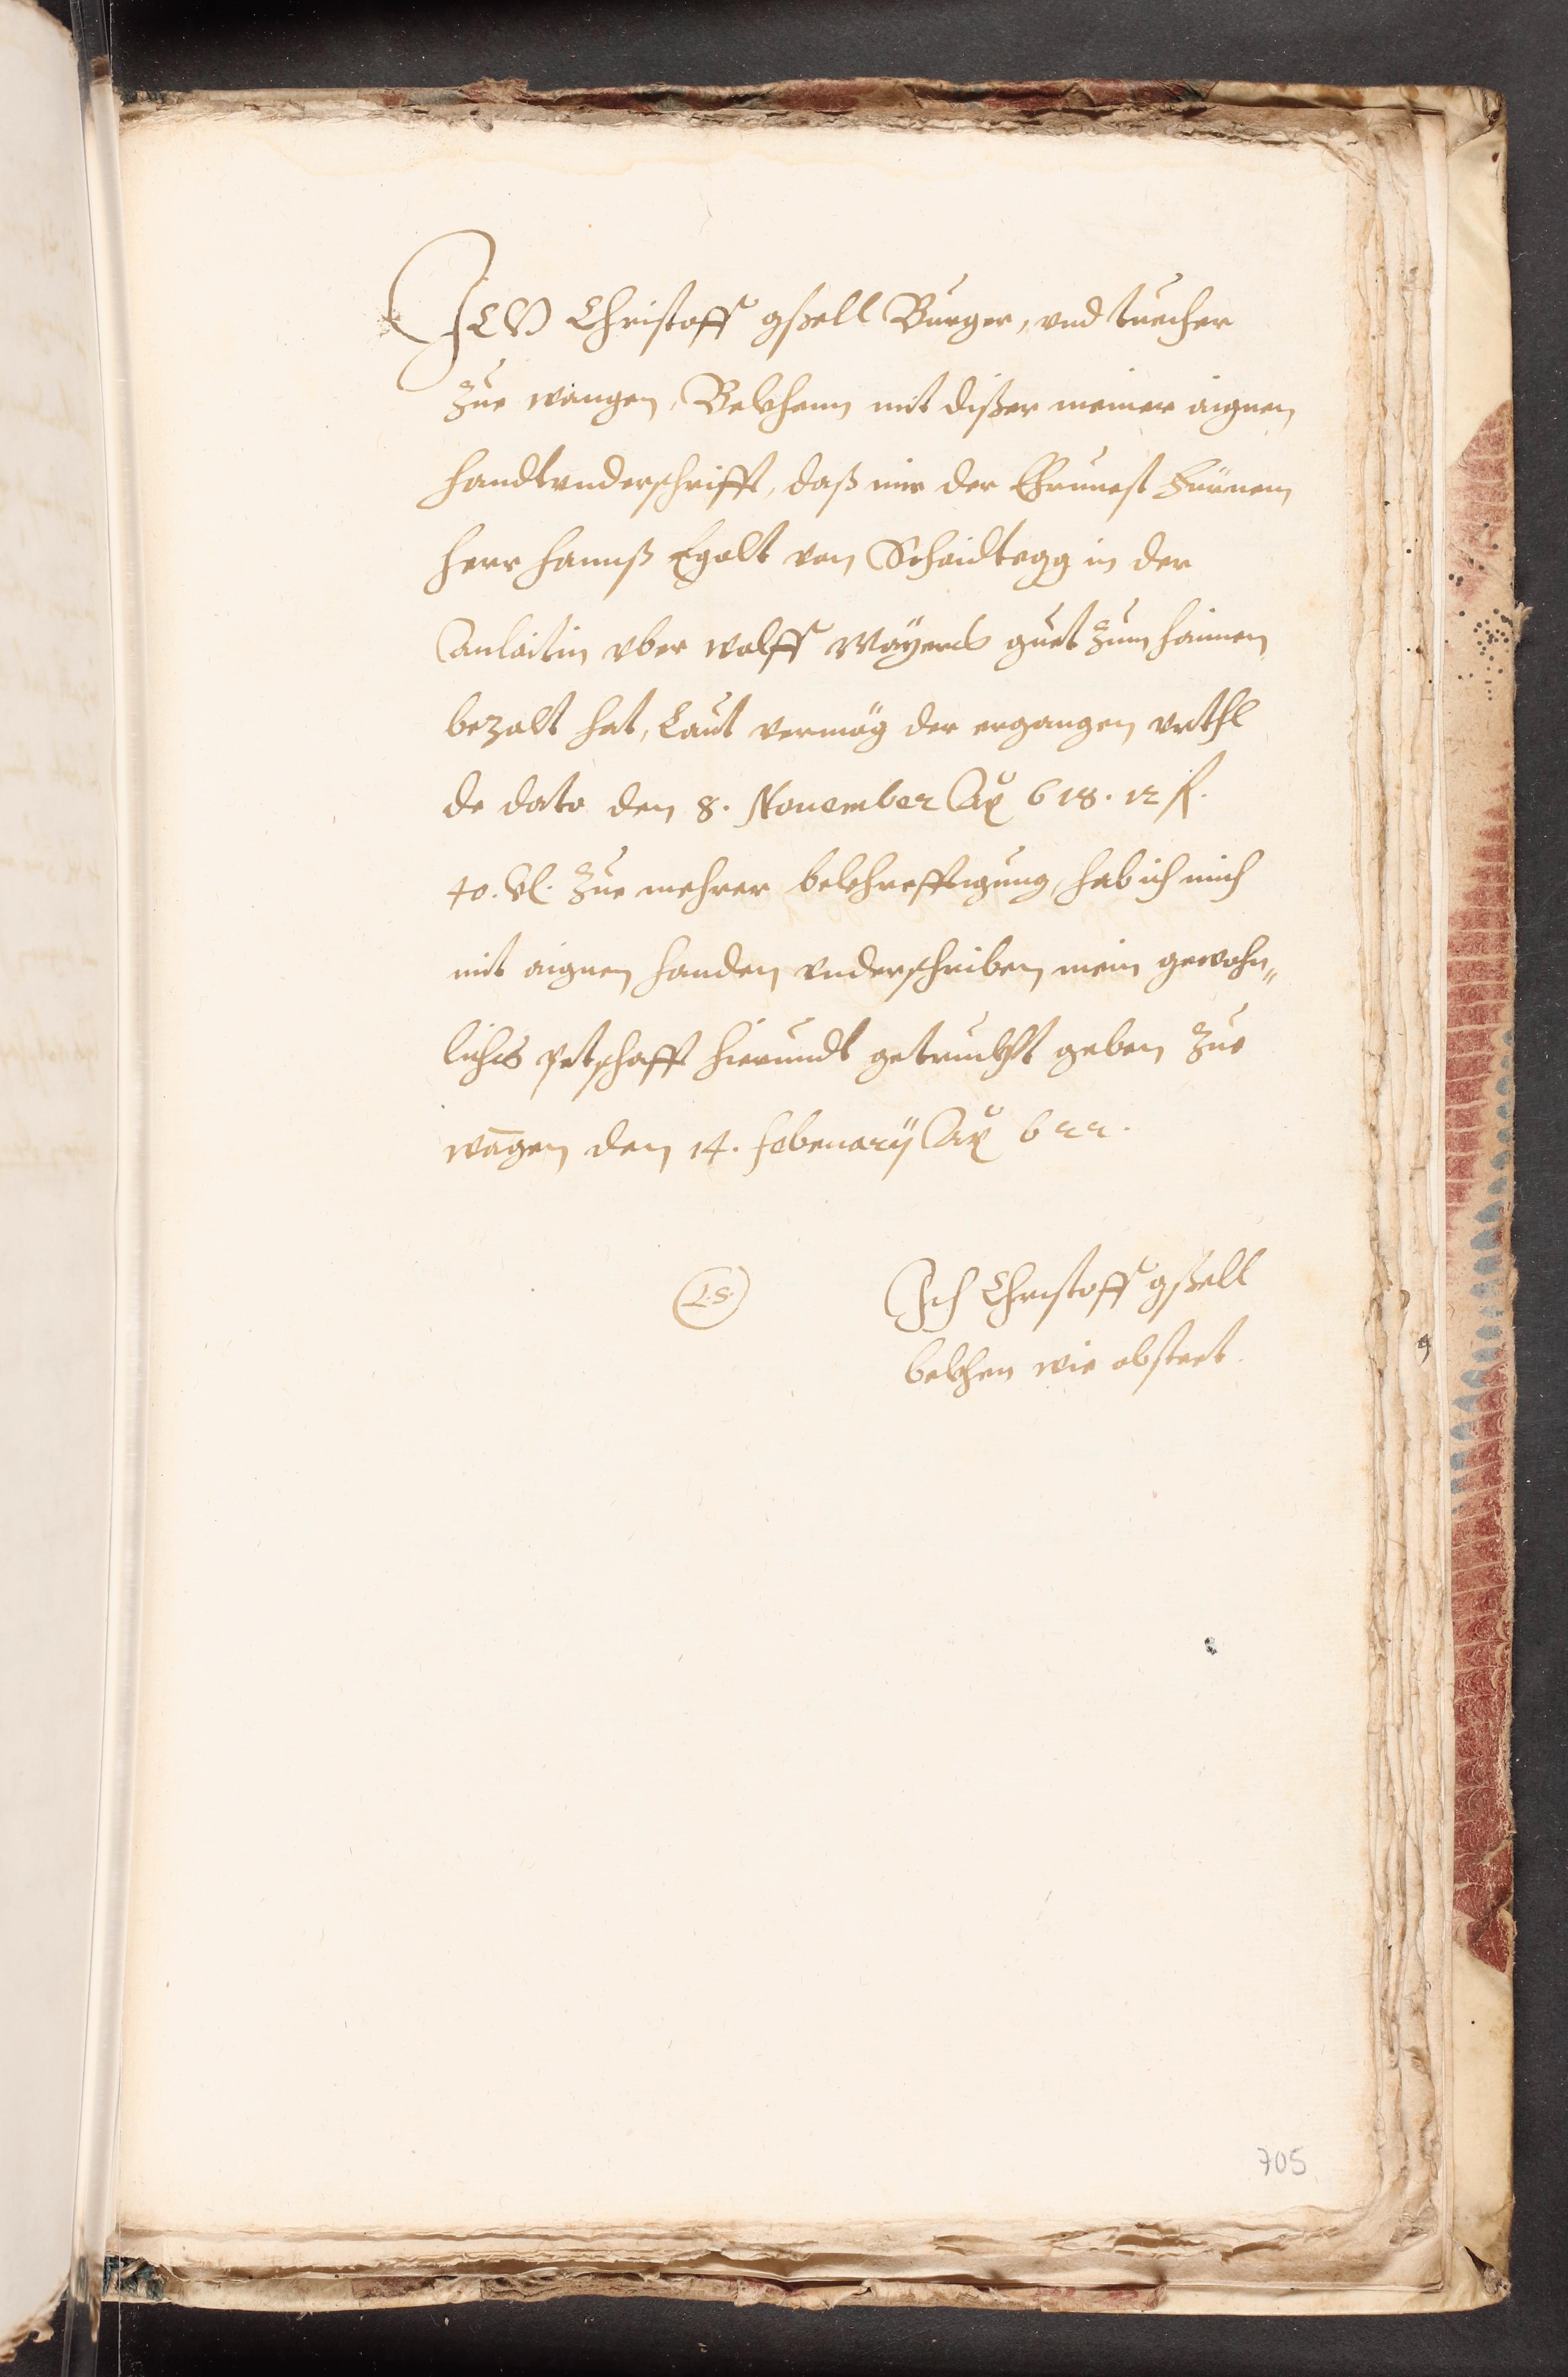 ICH Christoff gsell Burger, vnd tuecher
Zue wangen, Bekhenn mit dißer meiner aignen
handtvnderschrifft, daß mir der Ehrnuest Fürnem
herr hannß Egolt von Scheidtegg in der
Anlaitin vber wolff Mayers guet Zum hainen
bezalt hat, Laut vermög der ergangen vrthl
de dato den 8. Nouember Aõ 618. 12 fl.
40. kr. Zue mehrer bekhrefftigung, hab ich mich
mit aignen handen vnderschriben mein gewohn„
lichs petschafft hierundt getruckht geben Zue
wāgen den 14. febeuarÿ Aõ 622.
L.S.
Ich Christoff gsell
bekhen wie obsteet.
705